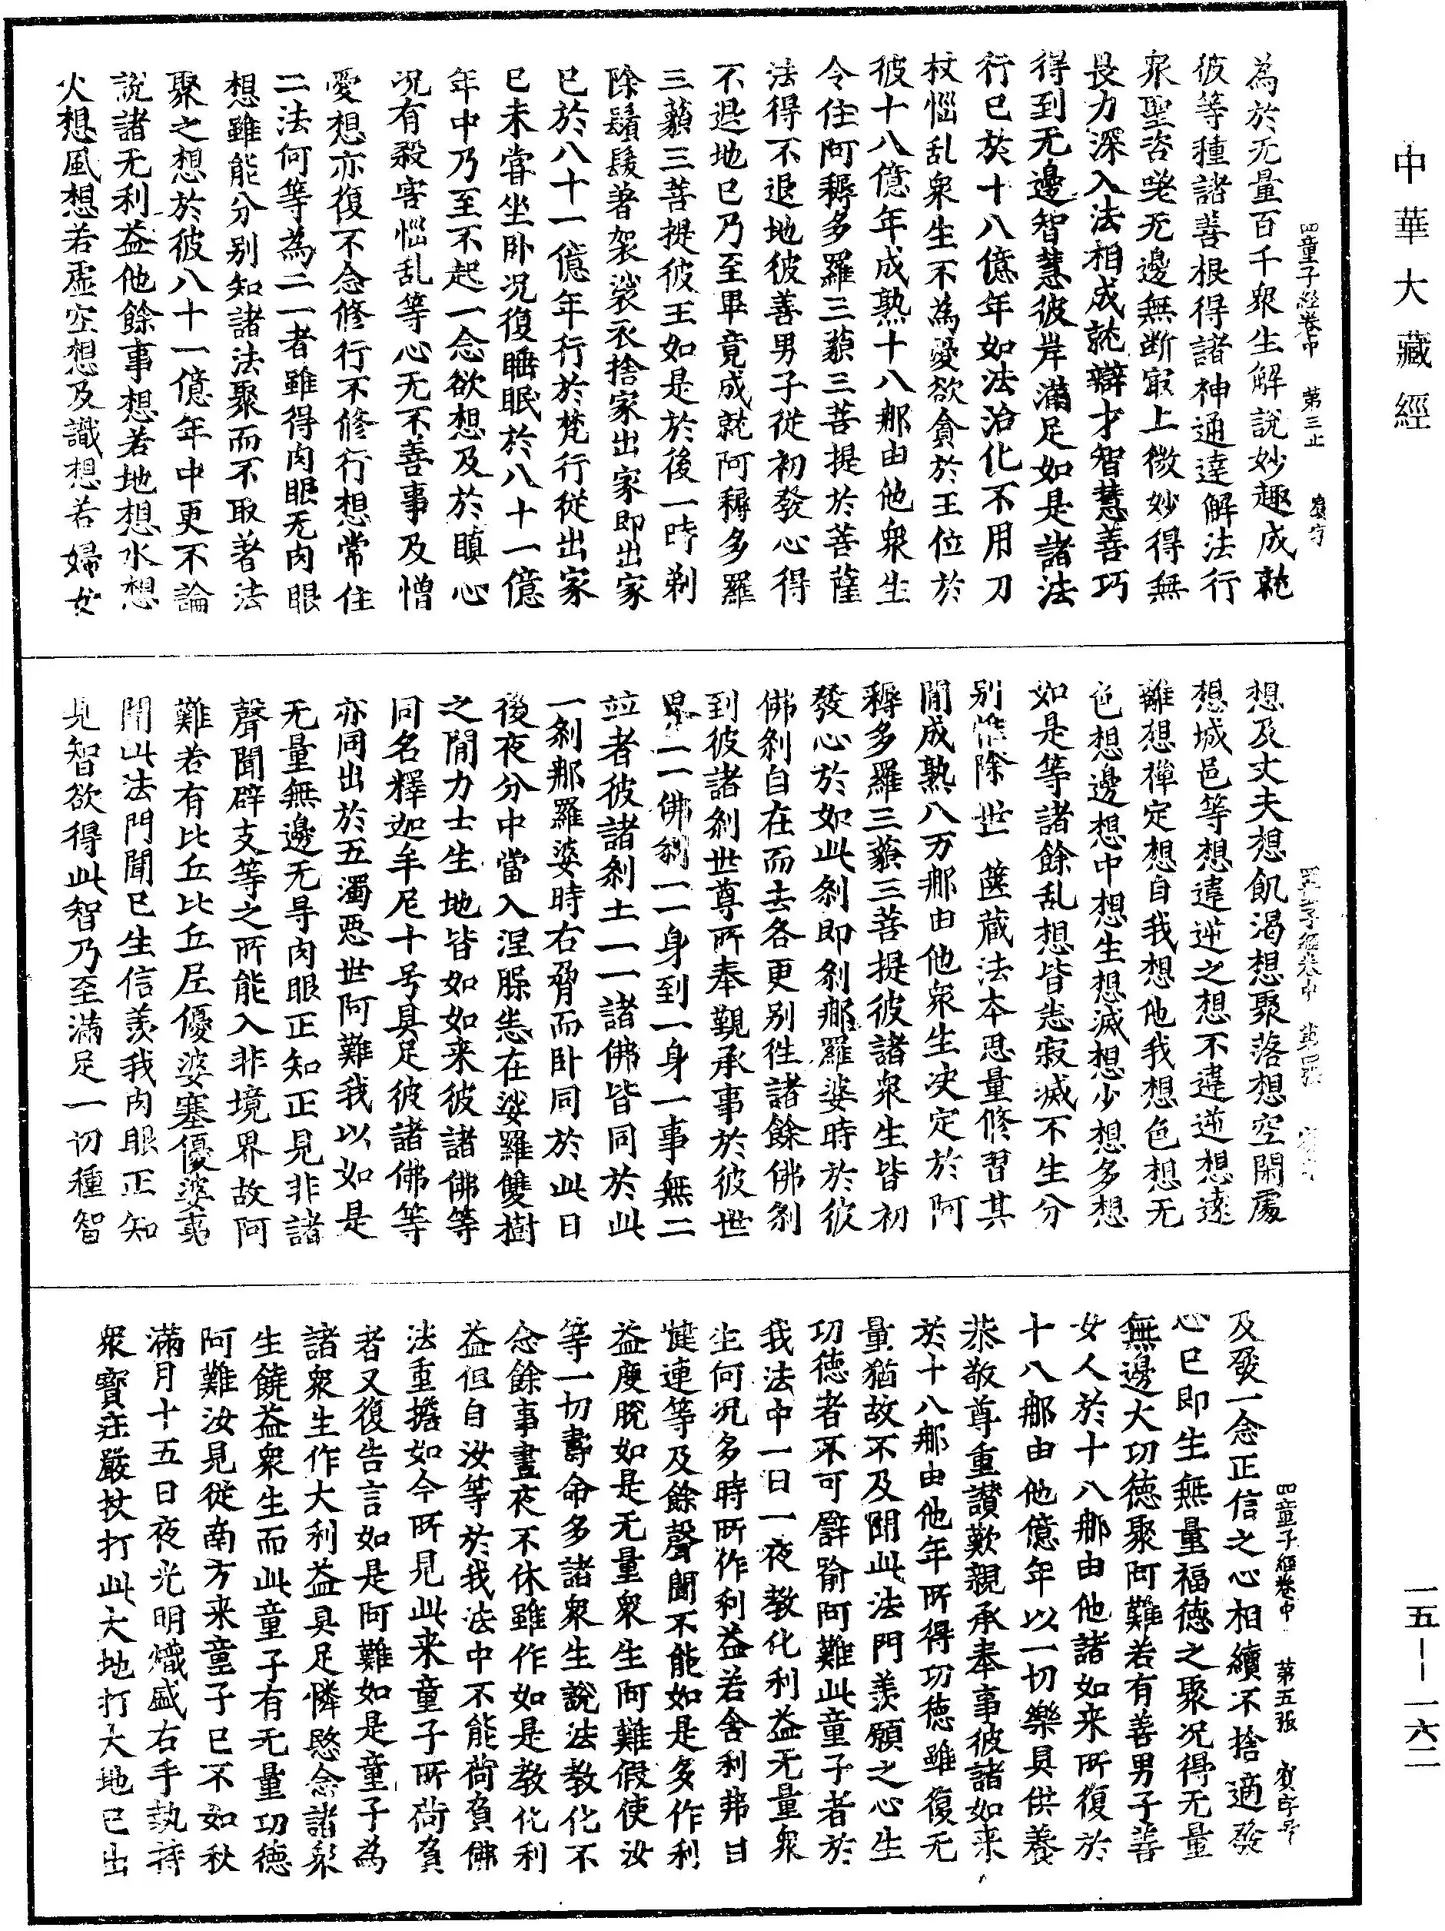 中華大藏經
四童子經卷中　第三止
為於无量百千衆生解說妙趣成就
彼等種諸善根得諸神通達解法行
衆聖咨嗟无邊無断㝡上微妙得無
畏力深入法相成就辯才智慧善巧
得到无邊智慧彼岸滿足如是諸法
行已於十八億年如法治化不用刀
杖惱乱衆生不為愛欲貪於王位於
彼十八億年成熟十八那由他衆生
令住阿耨多羅三藐三菩提於菩薩
法得不退地彼善男子從初發心得
不退地已乃至畢竟成就阿耨多羅
三藐三菩提彼王如是於後一時剃
除鬚髮著袈裟衣捨家出家即出家
已於八十一億年行於梵行從出家
已未甞坐卧况復睡眠於八十一億
年中乃至不起一念欲想及於瞋心
况有殺害惱乱等心无不善事及憎
愛想亦復不念修行不修行想常住
二法何等為二一者雖得肉眼无肉眼
想雖能分别知諸法聚而不取著法
聚之想於彼八十一億年中更不論
說諸无利益他餘事想若地想水想
火想風想若虛空想及識想若婦女
四童子經卷中
想及丈夫想飢渴想聚落想空閑處
想城邑等想違逆之想不違逆想遠
離想禅定想自我想他我想色想无
色想邊想中想生想滅想少想多想
如是等諸餘乱想皆悉寂滅不生分
别惟除世篋藏法本思量修習其
閒成熟八万那由他衆生决定於阿
耨多羅三藐三菩提彼諸衆生皆初
發心於如此刹即刹那羅婆時於彼
佛刹自在而去各更别徃諸餘佛刹
到彼諸刹世尊所奉覲承事於彼世
界一一佛刹一一身到一身一事無二
竝者彼諸刹土一一諸佛皆同於此
一刹那羅婆時右脅而卧同於此日
後夜分中當入涅槃悉在娑羅雙樹
之閒力士生地皆如如来彼諸佛等
同名釋迦牟尼十号具足彼諸佛等
亦同出於五濁惡世阿難我以如是
无量無邊无㝵肉眼正知正見非諸
聲聞辟支等之所能入非境界故阿
難若有比丘比丘尼優婆塞優婆夷
聞此法門聞已生信羡我肉眼正知
見智欲得此智乃至滿足一切種智
四童子經卷中　第五張
及發一念正信之心相續不捨適發
心已即生無量福德之聚况得无量
無邊大功德聚阿難若有善男子善
女人於十八那由他諸如来所復於
十八那由他億年以一切樂具供養
恭敬尊重讃歎親承奉事彼諸如来
於十八那由他年所得功德雖復无
量猶故不及聞此法門羡願之心生
功德者不可譬喻阿難此童子者於
我法中一日一夜教化利益无量衆
生何况多時所作利益若舍利弗目
揵連等及餘聲聞不能如是多作利
益度脫如是无量衆生阿難假使汝
等一切壽命多諸衆生說法教化不
念餘事晝夜不休雖作如是教化利
益但自汝等於我法中不能荷負佛
法重擔如今所見此来童子所荷負
者又復告言如是阿難如是童子為
諸衆生作大利益具足憐愍念諸衆
生饒益衆生而此童子有无量功德
阿難汝見從南方来童子已不如秋
滿月十五日夜光明熾盛右手執持
衆寶莊嚴杖打此大地打大地已出
一五——一六二